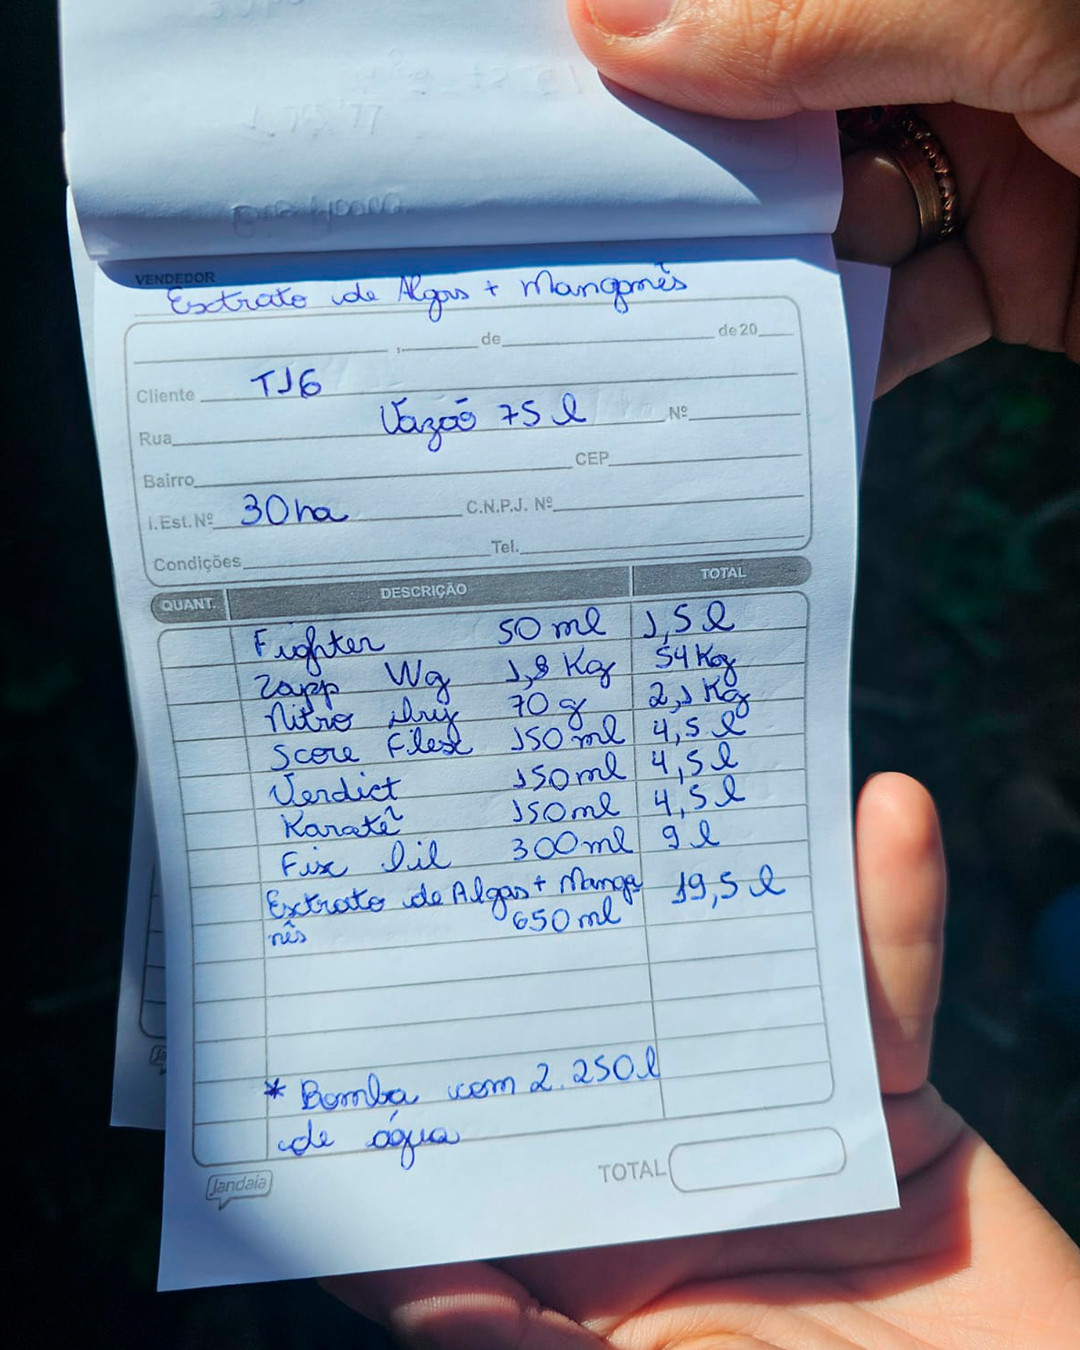 VENDEDOR
Extrato de Algas + Manganês
, de de 20
Cliente TJ6
Rua Vazão 75 l Nº
Bairro CEP
I.Est.Nº 30ha C.N.P.J. Nº
Condições Tel.
QUANT. DESCRIÇÃO TOTAL
Fighter 50 ml 1,5 l
Zapp Wg 1,8 Kg 54 Kg
Nitro dry 70 g 2,1 Kg
Score Flex 150 ml 4,5 l
Verdict 150ml 4,5 l
Karatê 150ml 4,5 l
Fix Oil 300ml 9 l
Extrato de Algas + Manga 19,5 l
nês 650 ml
* Bomba com 2.250 l
de água
Jandaia TOTAL